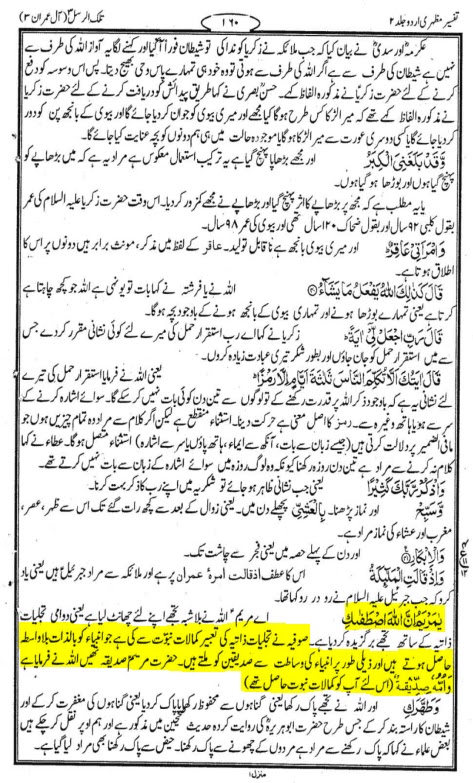 تفسیر مظہری اردو جلد ۲
۱۶۰
تلک الرسل ۳ (آل عمران ۳)
عکرمہ اور سدی نے بیان کیا کہ جب ملائکہ نے زکریا کو ندا کی تو شیطان فوراً آ گیا اور کہنے لگا یہ آواز اللہ کی طرف سے
نہیں ہے شیطان کی طرف سے ہے اگر اللہ کی طرف سے ہوتی تو وہ خود ہی تمہارے پاس وحی بھیج دیتا۔ پس اس وسوسہ کو دفع
کرنے کے لئے حضرت زکریا نے مذکورہ الفاظ کہے۔ حسن بصری نے کہا طریق پیدائش کو دریافت کرنے کے لئے زکریا
نے مذکورہ الفاظ کہے تھے کہ میرا لڑکا کس طرح ہو گا کیا مجھے اور میری بیوی کو جوان کر دیا جائے گا اور بیوی کے بانجھ پن کو دور
کر دیا جائے گا یا کسی دوسری عورت سے میرا لڑکا ہو گا یا موجودہ حالت میں ہی ہم دونوں کو بچہ عنایت کیا جائے گا۔
وَقَدْ بَلَغَنِيَ الْكِبَرُ اور مجھے بڑھاپا پہنچ گیا ہے یہ ترکیب استعمال معکوس ہے مراد یہ ہے کہ میں بڑھاپے کو
پہنچ گیا ہوں اور بوڑھا ہو گیا ہوں۔
یا یہ مطلب ہے کہ مجھ پر بڑھاپے کا اثر پہنچ گیا اور بڑھاپے نے مجھے کمزور کر دیا۔ اس وقت حضرت زکریا علیہ السلام کی عمر
بقول کلبی ۹۲ سال اور بقول ضحاک ۱۲۰ سال تھی اور بیوی کی عمر ۹۸ سال۔
وَامْرَاَتِيْ عَاقِرٌ اور میری بیوی بانجھ ہے نا قابل تولید۔ عاقر کے لفظ میں مذکر، مونث برابر ہیں دونوں پر اس کا
اطلاق ہوتا ہے۔
قَالَ كَذٰلِكَ اللّٰهُ يَفْعَلُ مَا يَشَآءُ اللہ نے یا فرشتہ نے کہا بات تو یونہی ہے اللہ جو کچھ چاہتا ہے
کرتا ہے یعنی تمہارے بوڑھا ہونے اور تمہاری بیوی کے بانجھ ہونے کے باوجود بچہ ہو گا۔
قَالَ رَبِّ اجْعَلْ لِّيْ اٰيَةً زکریا نے کہا اے رب استقرار حمل کی میرے لئے کوئی نشانی مقرر کر دے جس
سے میں استقرار حمل کو جان جاؤں اور بطور شکر تیری عبادت زیادہ کروں۔
قَالَ اٰيَتُكَ اَلَّا تُكَلِّمَ النَّاسَ ثَلٰثَةَ اَيَّامٍ اِلَّا رَمْزًا یعنی اللہ نے فرمایا استقرار حمل کی تیرے
لئے نشانی یہ ہے کہ باوجود ذکر اللہ پر قدرت رکھنے کے تو لوگوں سے تین دن کوئی بات نہیں کر سکے گا۔ سوائے اشارہ کرنے کے
سر سے ہو یا ہاتھ وغیرہ سے۔ رمز کا اصل معنی ہے حرکت دینا۔ استثناء منقطع ہے لیکن اگر کلام سے مراد وہ تمام چیزیں ہوں جو
مافی الضمیر پر دلالت کرتی ہیں (جیسے زبان سے بات، آنکھ سے ایماء، ہاتھ پاؤں یا سر سے اشارہ) استثناء متصل ہو گا۔ عطاء نے کہا
کلام نہ کرنے سے مراد ہے تین دن روزہ رکھنا کیونکہ وہ لوگ روزہ میں سوائے اشارہ کے زبان سے بات نہیں کرتے تھے۔
وَاذْكُرْ رَّبَّكَ كَثِيْرًا یعنی جب نشانی ظاہر ہو جائے تو شکریہ میں اپنے رب کا ذکر بہت کرنا۔
وَسَبِّحْ اور نماز پڑھنا۔ بِالْعَشِيِّ پچھلے دن میں۔ یعنی زوال کے بعد سے کچھ رات گئے تک اس سے ظہر، عصر،
مغرب اور عشاء کی نماز مراد ہے۔
وَالْاِبْكَارِ اور دن کے پہلے حصہ میں یعنی فجر سے چاشت تک۔
وَاِذْ قَالَتِ الْمَلٰٓئِكَةُ اس کا عطف اذ قالت امرأۃ عمران پر ہے اور ملائکہ سے مراد جبرئیل ہیں یعنی یاد
کرو کہ جب جبرئیل علیہ السلام نے رو در رو کہا تھا۔
يٰمَرْيَمُ اِنَّ اللّٰهَ اصْطَفٰىكِ اے مریم اللہ نے بلاشبہ تجھے اپنے لئے چھانٹ لیا ہے یعنی دوامی تجلیات
ذاتیہ کے ساتھ تجھے برگزیدہ کر دیا ہے۔ صوفیہ نے تجلیات ذاتیہ کی تعبیر کمالات نبوت سے کی ہے جو انبیاء کو بالذات بلا واسطہ
حاصل ہوتے ہیں اور ذیلی طور پر انبیاء کی وساطت سے صدیقین کو ملتے ہیں۔ حضرت مریم صدیقہ تھیں اللہ نے فرمایا ہے
وَاُمُّهٗ صِدِّيْقَةٌ (اس لئے آپ کو کمالات نبوت حاصل تھے)
وَطَهَّرَكِ اور اللہ نے تجھے پاک رکھا یعنی گناہوں سے محفوظ رکھا یا پاک کر دیا یعنی گناہوں کی مغفرت کر کے اور
شیطان کا راستہ بند کر کے جس طرح حضرت ابوہریرہ کی روایت کردہ حدیث صحیحین میں مذکور ہے اور ہم اوپر نقل کر چکے ہیں
بعض علماء نے کہا کہ پاک رکھنے سے مراد ہے مردوں کے چھونے سے پاک رکھنا۔ حیض سے پاک رکھنا بھی مراد لیا گیا ہے۔
منزل ۱